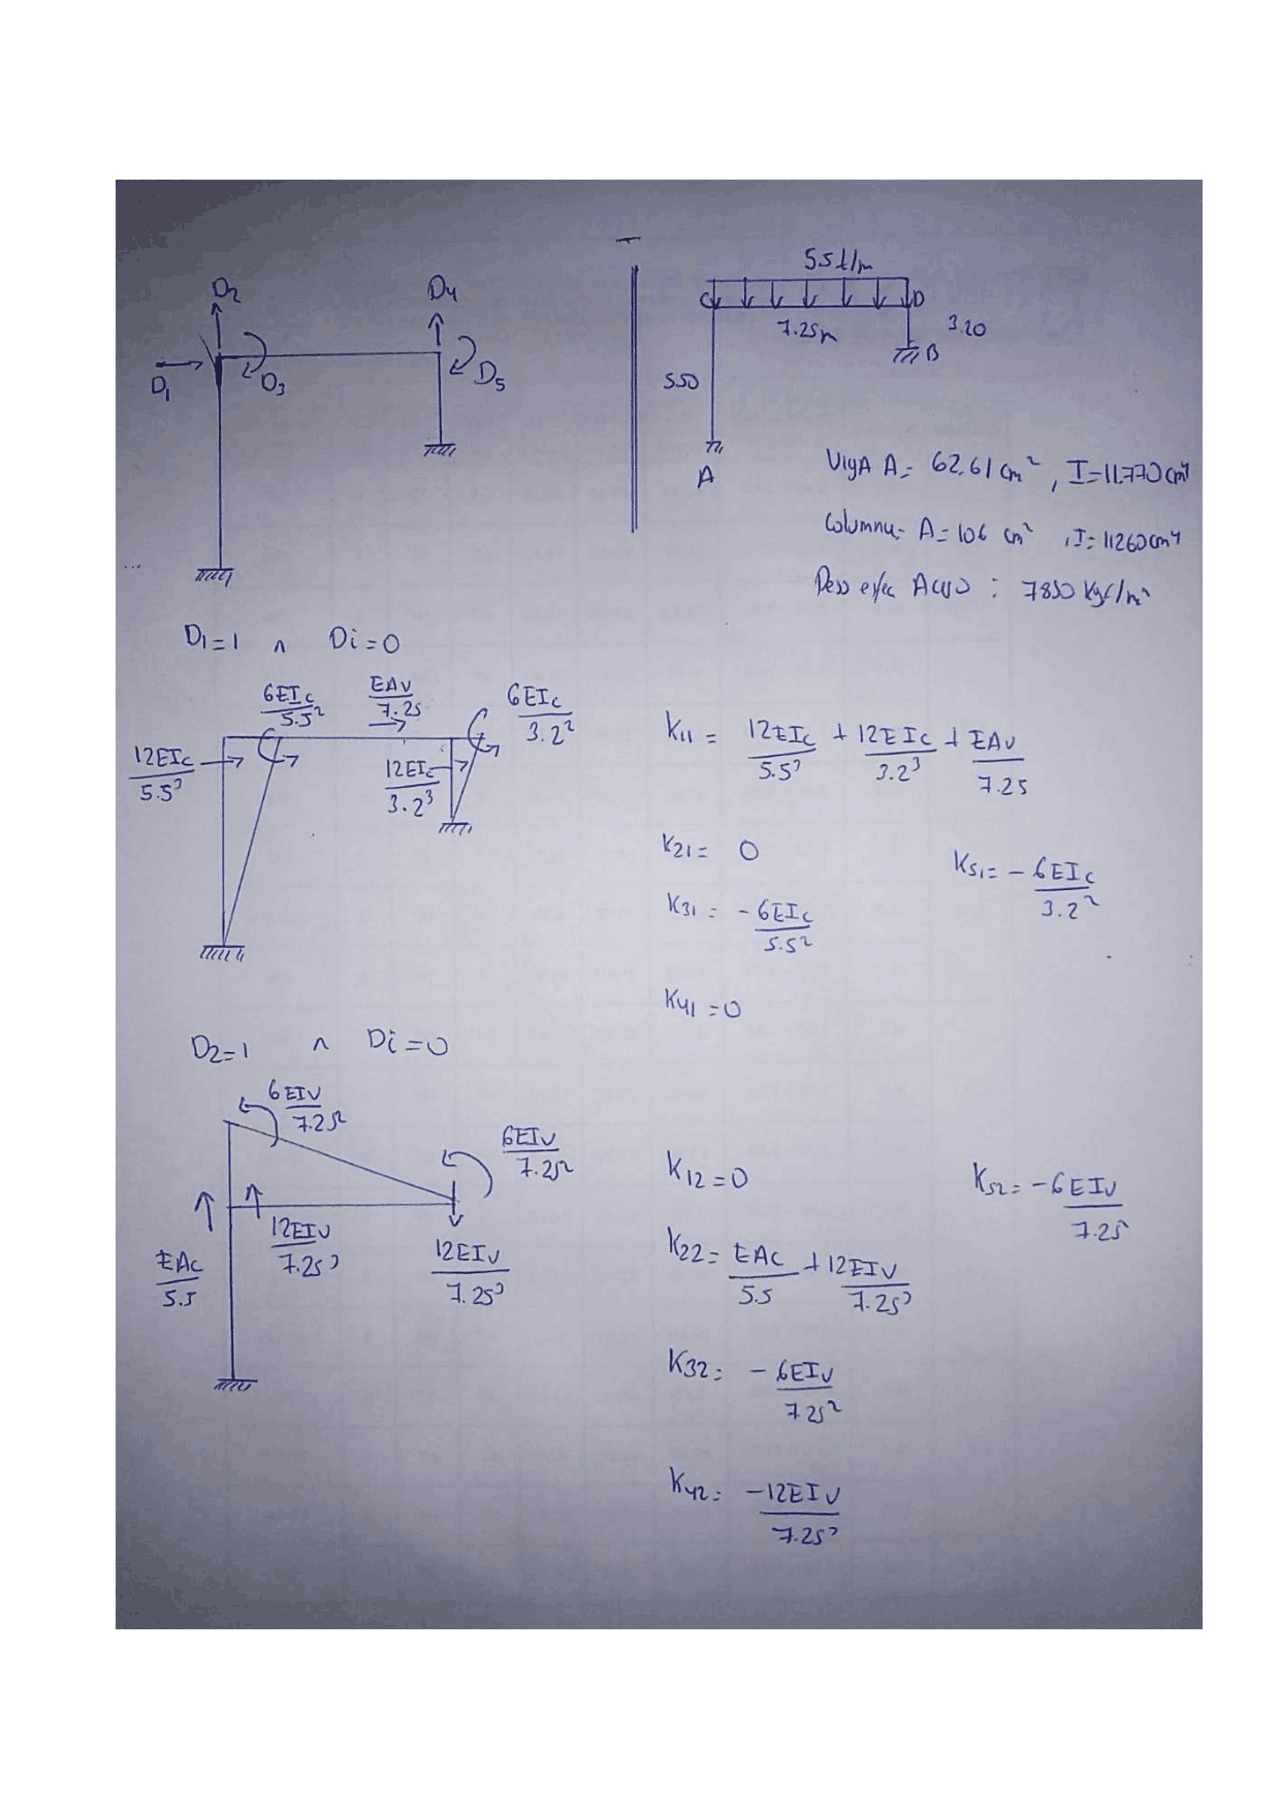 D2
D4
D1
D3
D5
5.5 t/m
C
D
7.25m
3.20
B
5.50
A
Viga A= 62.61 cm², I=11.770 cm⁴
Columna- A=106 cm², I= 11260 cm⁴
Peso esfec Acero : 7850 Kgf/m³
D1=1 ∧ Di=0
6EIc/5.5²
EAv/7.25
6EIc/3.2²
12EIc/5.5³
12EIc/3.2³
K11 = 12EIc/5.5³ + 12EIc/3.2³ + EAv/7.25
K21= 0
K51= -6EIc/3.2²
K31= -6EIc/5.5²
K41=0
D2=1 ∧ Di=0
6EIv/7.25²
6EIv/7.25²
12EIv/7.25³
12EIv/7.25³
EAc/5.5
K12=0
K52= -6EIv/7.25
K22= EAc/5.5 + 12EIv/7.25³
K32= -6EIv/7.25²
K42= -12EIv/7.25³